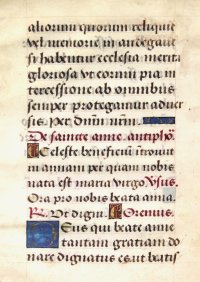 aliorum quorum reliquie
vel memorie in andegavē
si habentur ecclesia merita
gloriosa ut eorum pia in
tercessione ab omnibus
semper protegamur adver
sis. Per dn̄m nr̄m.
De sancte anne. antiphō.
Celeste beneficiū ītroivit
in annam per quam nobis
nata est maria virgo. V̄sus.
Ora pro nobis beata anna.
R̄. Vt digni. Oremus.
Deus qui beate anne
tantam gratiam do
nare dignatus es. ut beatis